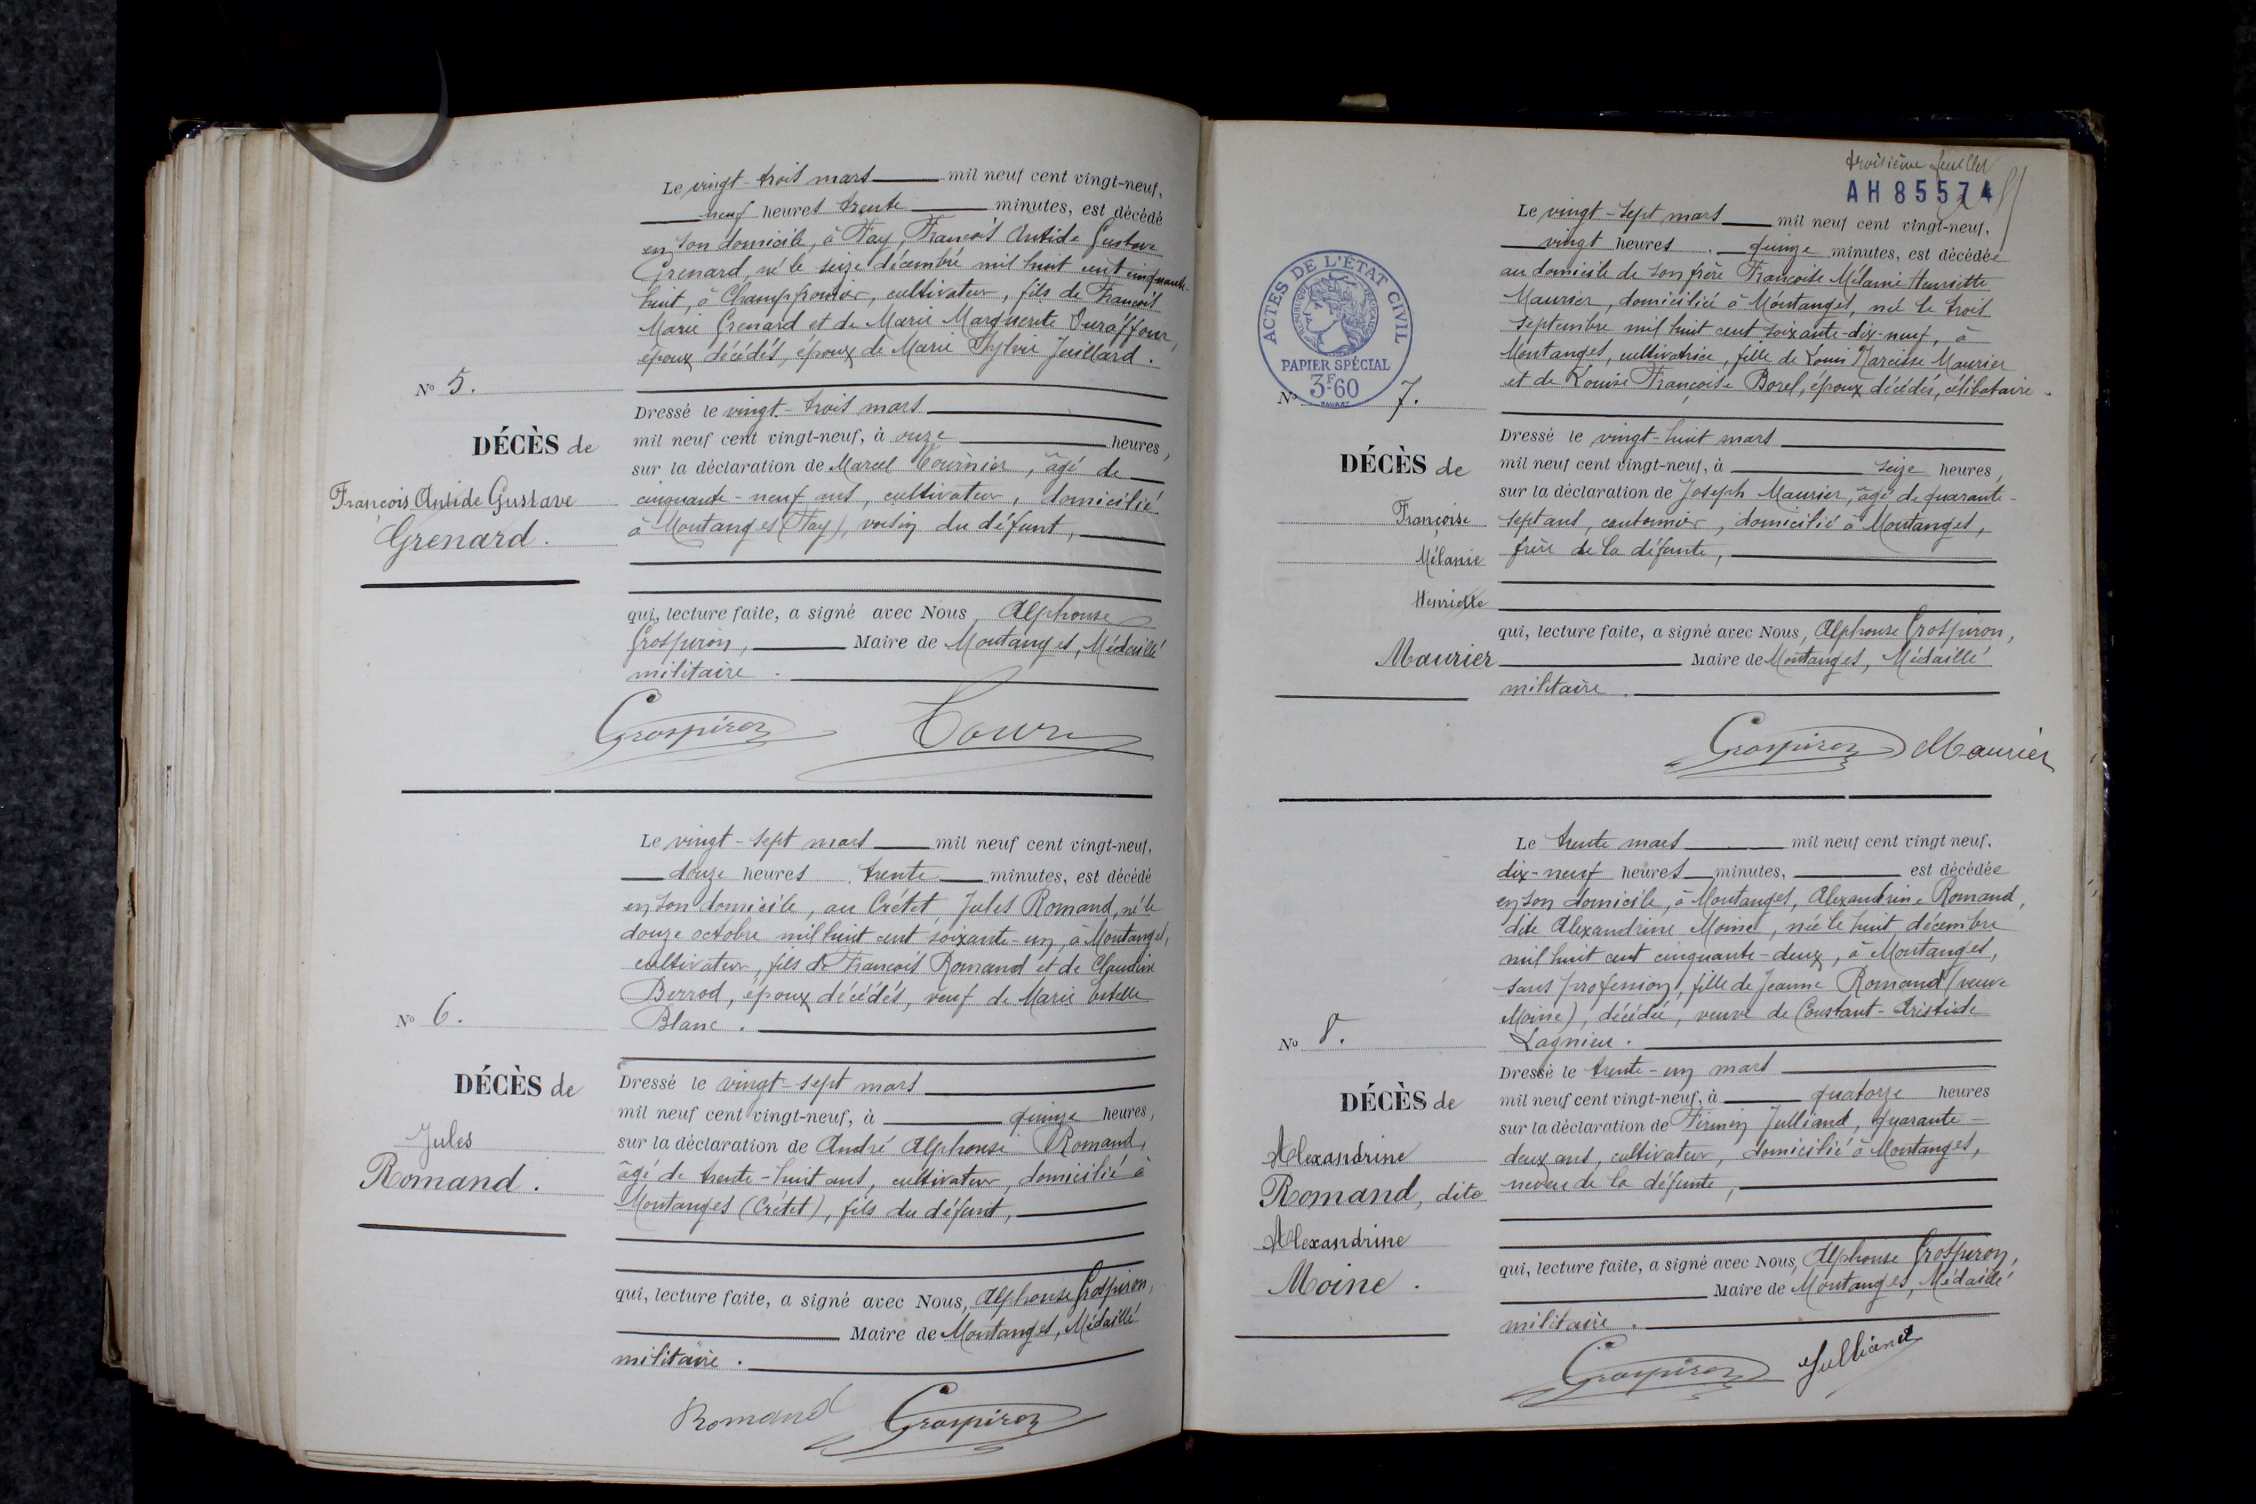 Le vingt-trois mars mil neuf cent vingt-neuf,
neuf heures trente minutes, est décédé
en son domicile, à Fay, François Antide Gustave
Grenard, né le seize décembre mil huit cent cinquante-
huit, à Champfromier, cultivateur, fils de François
Marie Grenard et de Marie Marguerite Duraffour,
époux décédés, époux de Marie Sylvie Juillard.
N° 5.
Dressé le vingt-trois mars
mil neuf cent vingt-neuf, à onze heures,
DÉCÈS de
sur la déclaration de Marcel Tournier, âgé de
François Antide Gustave
cinquante-neuf ans, cultivateur, domicilié
Grenard.
à Montanges (Fay), voisin du défunt,
qui, lecture faite, a signé avec Nous, Alphonse
Grospiron, Maire de Montanges, Médaillé
militaire.
Grospiron
Le vingt-sept mars mil neuf cent vingt-neuf,
douze heures trente minutes, est décédé
en son domicile, au Crétet, Jules Romand, né le
douze octobre mil huit cent soixante-un, à Montanges,
cultivateur, fils de François Romand et de Claudine
Berrod, époux décédés, veuf de Marie Estelle
N° 6.
Blanc.
DÉCÈS de
Dressé le vingt-sept mars
mil neuf cent vingt-neuf, à quinze heures,
Jules
sur la déclaration de André Alphonse Romand,
Romand.
âgé de trente-huit ans, cultivateur, domicilié à
Montanges (Crétet), fils du défunt,
qui, lecture faite, a signé avec Nous, Alphonse Grospiron,
Maire de Montanges, Médaillé
militaire.
Romand Grospiron
troisième feuillet
AH 85574
Le vingt-sept mars mil neuf cent vingt-neuf,
vingt heures quinze minutes, est décédée
au domicile de son frère Françoise Mélanie Henriette
Maurier, domiciliée à Montanges, née le trois
septembre mil huit cent soixante-dix-neuf, à
Montanges, cultivatrice, fille de Louis Narcisse Maurier
et de Louise Françoise Borel, époux décédés, célibataire.
ACTES DE L'ÉTAT CIVIL
RÉPUBLIQUE FRANÇAISE
PAPIER SPÉCIAL
3F60
N° 7.
Dressé le vingt-huit mars
DÉCÈS de
mil neuf cent vingt-neuf, à seize heures,
sur la déclaration de Joseph Maurier, âgé de quarante-
Françoise
sept ans, cantonnier, domicilié à Montanges,
Mélanie
frère de la défunte,
Henriette
qui, lecture faite, a signé avec Nous, Alphonse Grospiron,
Maurier
Maire de Montanges, Médaillé
militaire.
Grospiron Maurier
Le trente mars mil neuf cent vingt neuf,
dix-neuf heures minutes, est décédée
en son domicile, à Montanges, Alexandrine Romand,
dite Alexandrine Moine, née le huit décembre
mil huit cent cinquante-deux, à Montanges,
sans profession, fille de Jeanne Romand (veuve
Moine), décédée, veuve de Constant-Aristide
N° 8.
Lagnieu.
Dressé le trente-un mars
DÉCÈS de
mil neuf cent vingt-neuf, à quatorze heures
sur la déclaration de Firmin Julliand, quarante-
Alexandrine
deux ans, cultivateur, domicilié à Montanges,
Romand, dite
neveu de la défunte,
Alexandrine
Moine.
qui, lecture faite, a signé avec Nous, Alphonse Grospiron,
Maire de Montanges, Médaillé
militaire.
Grospiron Julliand